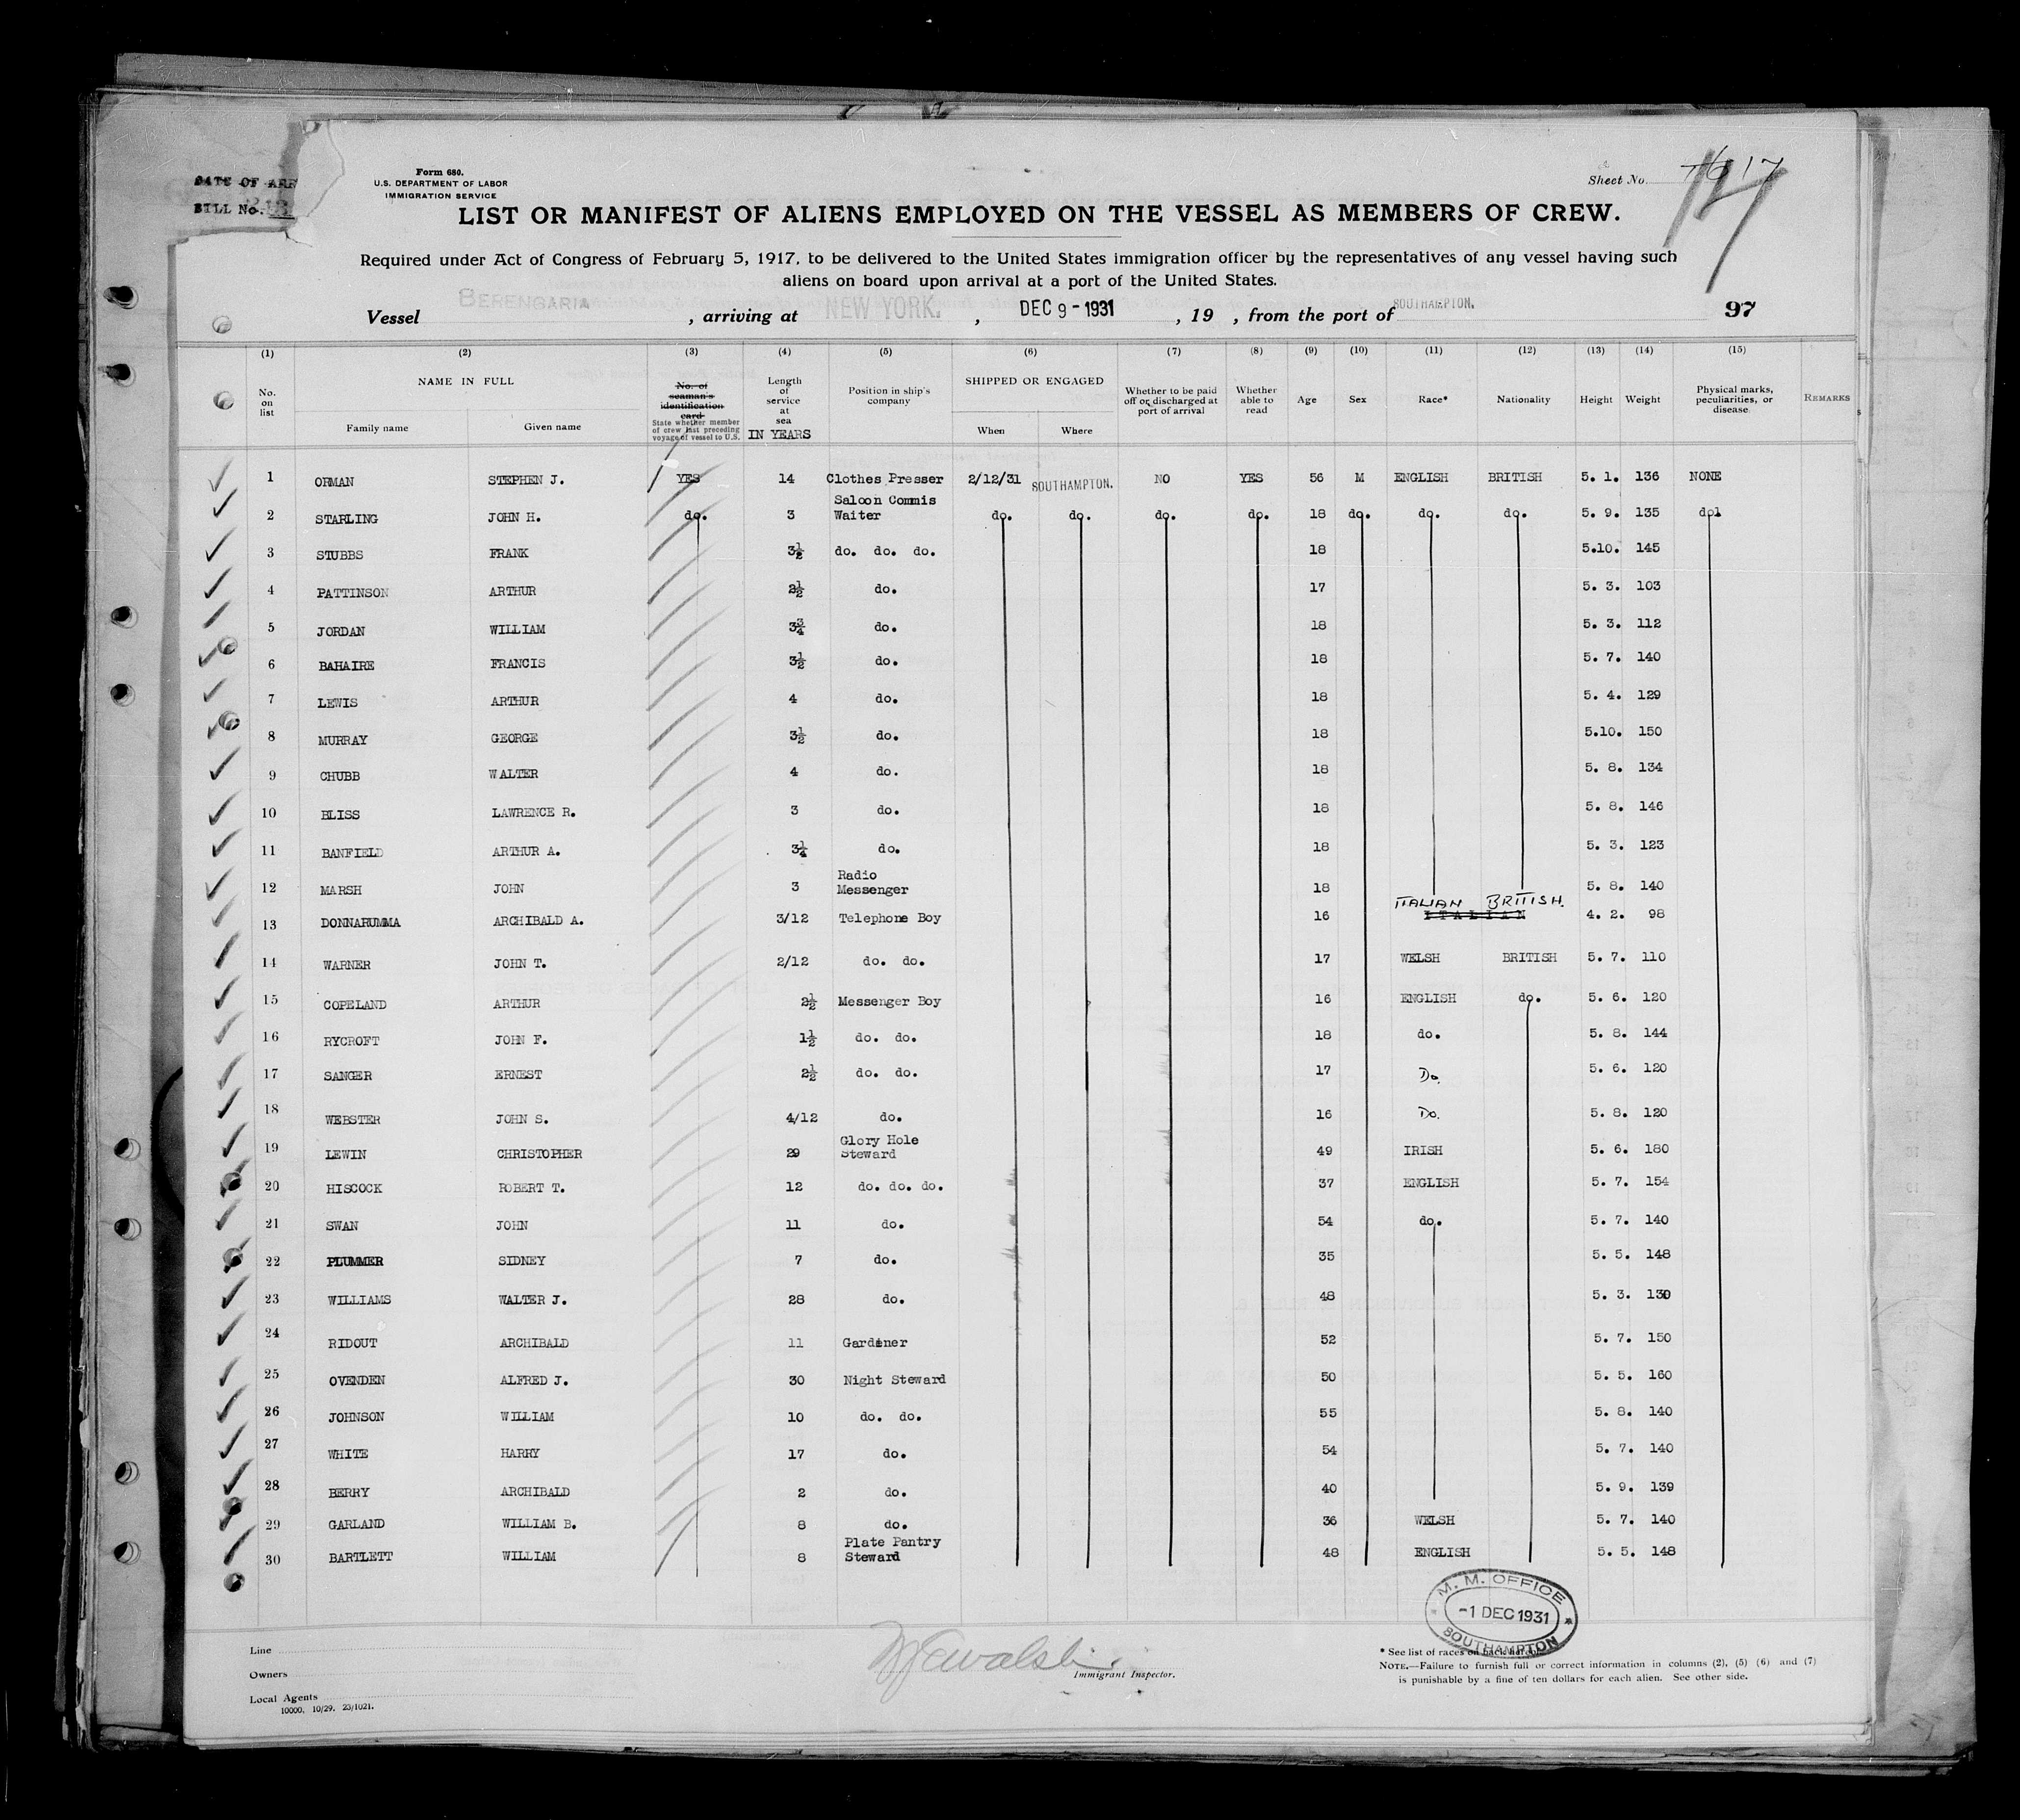 DATE OF ARR
BILL No.
Form 680.
U.S. DEPARTMENT OF LABOR
IMMIGRATION SERVICE
Sheet No. 17
17
LIST OR MANIFEST OF ALIENS EMPLOYED ON THE VESSEL AS MEMBERS OF CREW.
Required under Act of Congress of February 5, 1917, to be delivered to the United States immigration officer by the representatives of any vessel having such
aliens on board upon arrival at a port of the United States.
Vessel BERENGARIA , arriving at NEW YORK. , DEC 9 - 1931 , 19 , from the port of SOUTHAMPTON. 97
(1) (2) (3) (4) (5) (6) (7) (8) (9) (10) (11) (12) (13) (14) (15)
No. on list NAME IN FULL Family name Given name No. of seaman's identification card State whether member of crew last preceding voyage of vessel to U.S. Length of service at sea IN YEARS Position in ship's company SHIPPED OR ENGAGED When Where Whether to be paid off or discharged at port of arrival Whether able to read Age Sex Race* Nationality Height Weight Physical marks, peculiarities, or disease REMARKS
1 ORMAN STEPHEN J. YES 14 Clothes Presser 2/12/31 SOUTHAMPTON. NO YES 56 M ENGLISH BRITISH 5. 1. 136 NONE
2 STARLING JOHN H. do. 3 Saloon Commis Waiter do. do. do. do. 18 do. do. do. 5. 9. 135 do.
3 STUBBS FRANK 3½ do. do. do. 18 5.10. 145
4 PATTINSON ARTHUR 2½ do. 17 5. 3. 103
5 JORDAN WILLIAM 3¾ do. 18 5. 3. 112
6 BAHAIRE FRANCIS 3½ do. 18 5. 7. 140
7 LEWIS ARTHUR 4 do. 18 5. 4. 129
8 MURRAY GEORGE 3½ do. 18 5.10. 150
9 CHUBB WALTER 4 do. 18 5. 8. 134
10 BLISS LAWRENCE R. 3 do. 18 5. 8. 146
11 BANFIELD ARTHUR A. 3¼ do. 18 5. 3. 123
12 MARSH JOHN 3 Radio Messenger 18 5. 8. 140
13 DONNARUMMA ARCHIBALD A. 3/12 Telephone Boy 16 ITALIAN BRITISH. ITALIAN 4. 2. 98
14 WARNER JOHN T. 2/12 do. do. 17 WELSH BRITISH 5. 7. 110
15 COPELAND ARTHUR 2½ Messenger Boy 16 ENGLISH do. 5. 6. 120
16 RYCROFT JOHN F. 1½ do. do. 18 do. 5. 8. 144
17 SANGER ERNEST 2½ do. do. 17 Do. 5. 6. 120
18 WEBSTER JOHN S. 4/12 do. 16 Do. 5. 8. 120
19 LEWIN CHRISTOPHER 29 Glory Hole Steward 49 IRISH 5. 6. 180
20 HISCOCK ROBERT T. 12 do. do. do. 37 ENGLISH 5. 7. 154
21 SWAN JOHN 11 do. 54 do. 5. 7. 140
22 PLUMMER SIDNEY 7 do. 35 5. 5. 148
23 WILLIAMS WALTER J. 28 do. 48 5. 3. 130
24 RIDOUT ARCHIBALD 11 Gardener 52 5. 7. 150
25 OVENDEN ALFRED J. 30 Night Steward 50 5. 5. 160
26 JOHNSON WILLIAM 10 do. do. 55 5. 8. 140
27 WHITE HARRY 17 do. 54 5. 7. 140
28 BERRY ARCHIBALD 2 do. 40 5. 9. 139
29 GARLAND WILLIAM B. 8 do. 36 WELSH 5. 7. 140
30 BARTLETT WILLIAM 8 Plate Pantry Steward 48 ENGLISH 5. 5. 148
M. M. OFFICE
-1 DEC 1931
SOUTHAMPTON
Line
Owners
Local Agents
10000. 10/29. 23/1021.
Immigrant Inspector.
* See list of races on back hereof.
NOTE.—Failure to furnish full or correct information in columns (2), (5) (6) and (7)
is punishable by a fine of ten dollars for each alien. See other side.